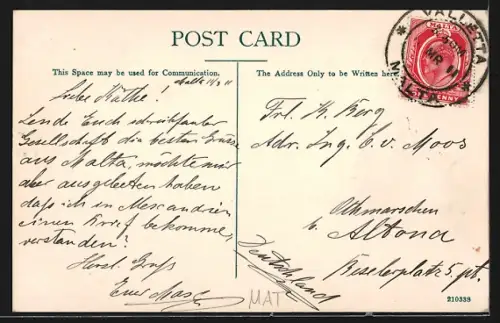 POST CARD
This Space may be used for Communication.
The Address Only to be Written here.
VALLETTA
MR 11
MALTA
Malta 11/3 11
Liebe Käthe!
Sende Euch
Gesellschaft die besten Grüsse
aus Malta, möchte mir
aber ausgebeten haben
daß ich in Alexandrien
einen Brief bekomme,
verstanden?
Herzl. Gruß
Euer
Frl. K. Berg
Adr. Ing. C. v. Moos
Othmarschen
b. Altona
Beselerplatz 5. pt.
Deutschland
MAT
210338